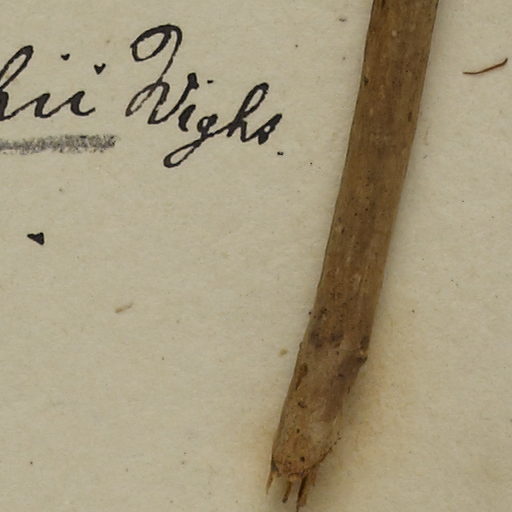 hii Wight